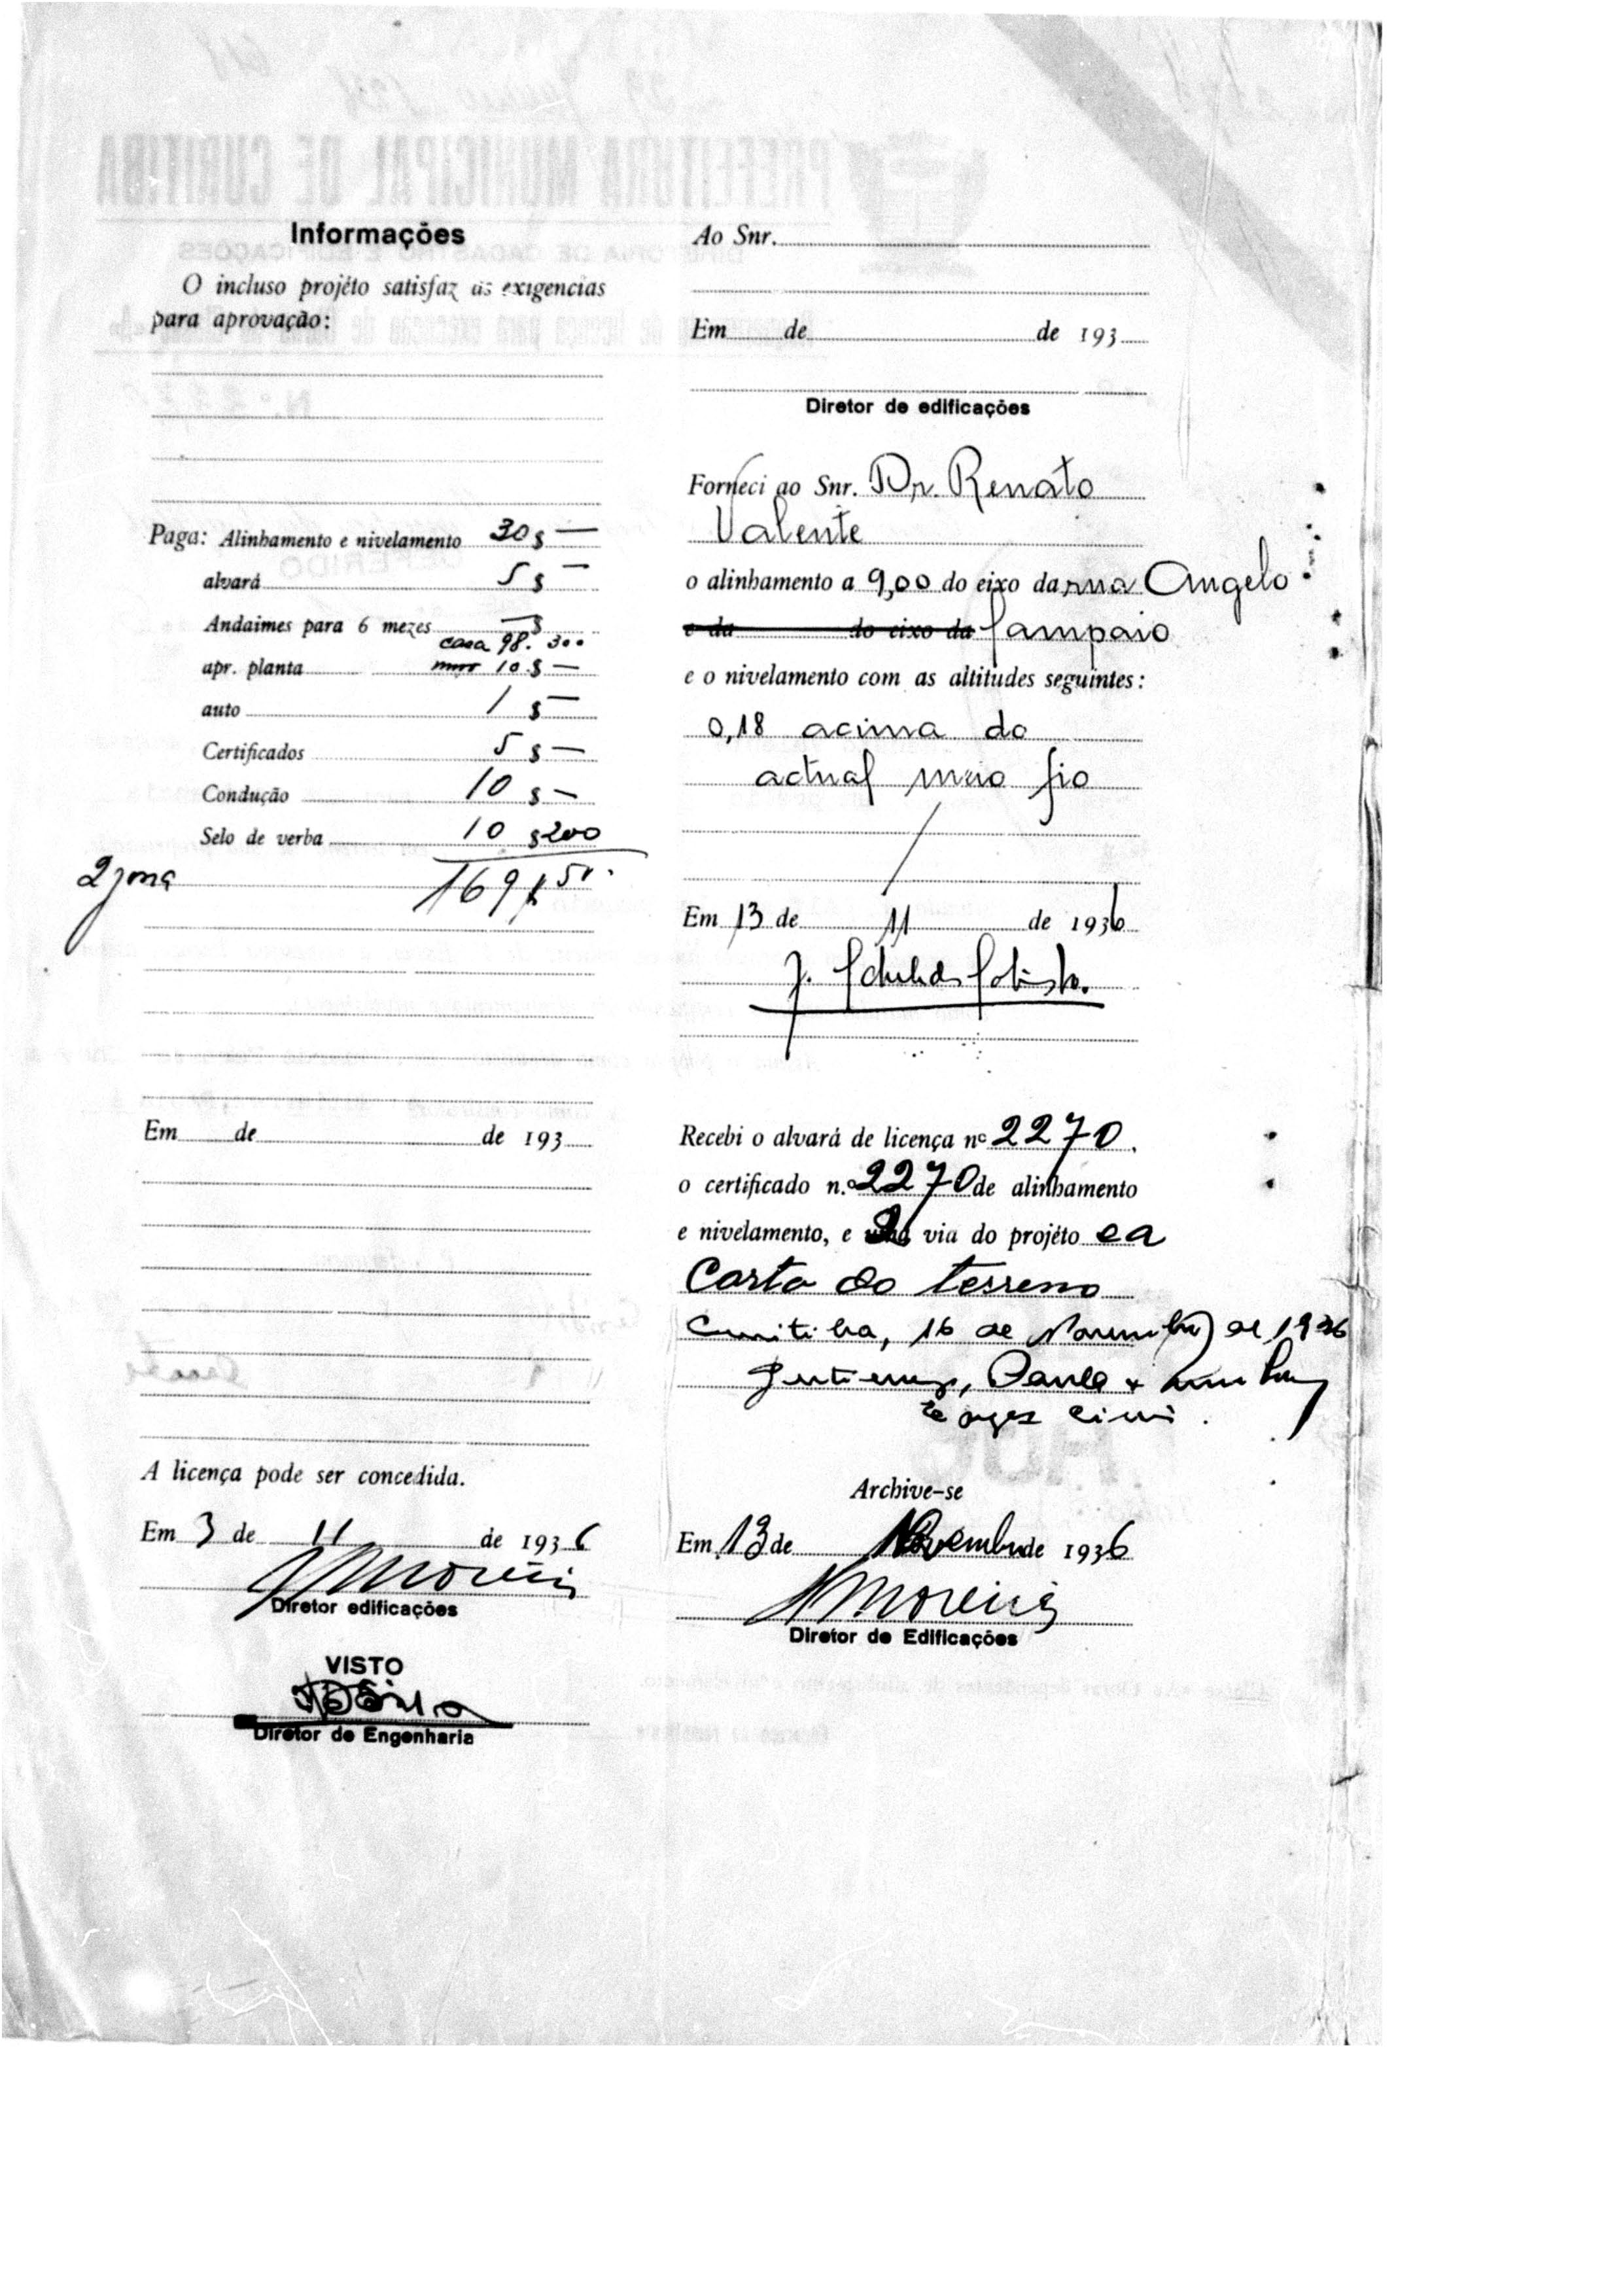 Informações
O incluso projéto satisfaz as exigencias
para aprovação:
Paga: Alinhamento e nivelamento 30 $ —
alvará 5 $ —
Andaimes para 6 mezes — $
casa 98. 300
apr. planta muro 10 $ —
auto 1 $ —
Certificados 5 $ —
Condução 10 $ —
Selo de verba 10 $ 200
2 zona 169
Em de de 193
A licença pode ser concedida.
Em 3 de 11 de 1936
Moreira
Diretor edificações
VISTO
Diretor de Engenharia
Ao Snr.
Em de de 193
Diretor de edificações
Forneci ao Snr. Dr. Renato
Valente
o alinhamento a 9,00 do eixo da rua Angelo
e da do eixo da Sampaio
e o nivelamento com as altitudes seguintes:
0,18 acima do
actual meio fio
Em 13 de 11 de 1936
Recebi o alvará de licença nº 2270.
o certificado n.º 2270 de alinhamento
e nivelamento, e 2ª via do projéto e a
Carta do terreno
Curitiba, 16 de Novembro de 1936
Gutierrez, Paula &
civis.
Archive-se
Em 13 de Novembro de 1936
Moreira
Diretor de Edificações
PREFEITURA MUNICIPAL DE CURITIBA